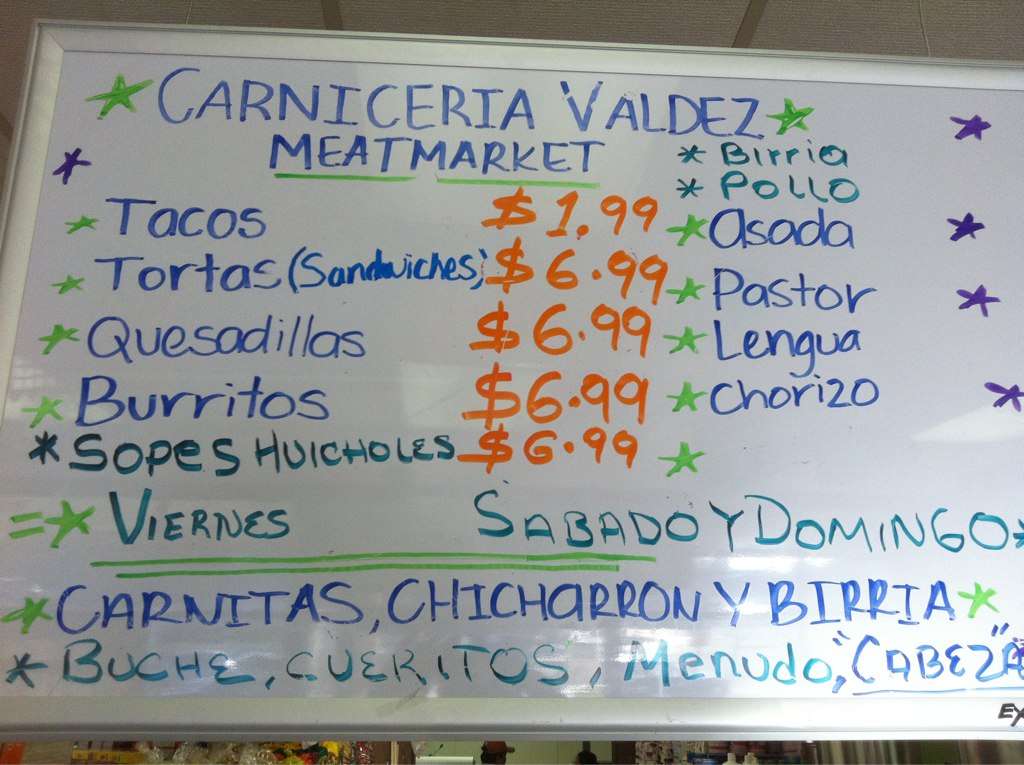 CARNICERIA VALDEZ
MEATMARKET
* Birria
* POLLO
Tacos $1.99
Asada
Tortas (Sandwiches) $6.99
Pastor
Quesadillas $6.99
Lengua
Burritos $6.99
Chorizo
* SOPES HUICHOLES $6.99
= VIERNES SABADO Y DOMINGO *
CARNITAS, CHICHARRON Y BIRRIA
* BUCHE, CUERITOS, Menudo, "CABEZA"